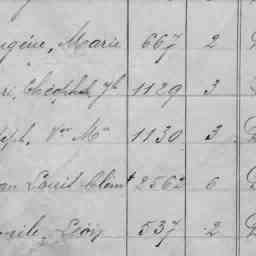 ugène, Marie 667 2
Théophile Jh 1129 3
seph, Vor Mie 1130 3
ean Louis Clémt 2562 6
mile, Léon 537 2